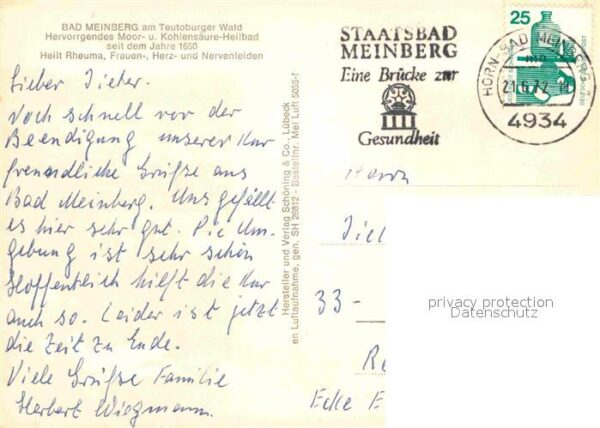 BAD MEINBERG am Teutoburger Wald
Hervorrgendes Moor- u. Kohlensäure-Heilbad
seit dem Jahre 1650
Heilt Rheuma, Frauen-, Herz- und Nervenleiden
Lieber Dieter.
Noch schnell vor der
Beendigung unserer Kur
freundliche Grüße aus
Bad Meinberg. Uns gefällt
es hier sehr gut. Die Um-
gebung ist sehr schön
Hoffentlich hilft die Kur
auch so. Leider ist jetzt
die Zeit zu Ende.
Viele Grüße Familie
Herbert Wiegmann.
Hersteller und Verlag Schöning & Co., Lübeck
en Luftaufnahme, gen. SH 26812 - Bestellnr. Mei Luft 5055-f
STAATSBAD
MEINBERG
Eine Brücke zur
Gesundheit
25
HORN-BAD MEINBERG 1
mn
4934
Herrn
33-
Ecke
privacy protection
Datenschutz